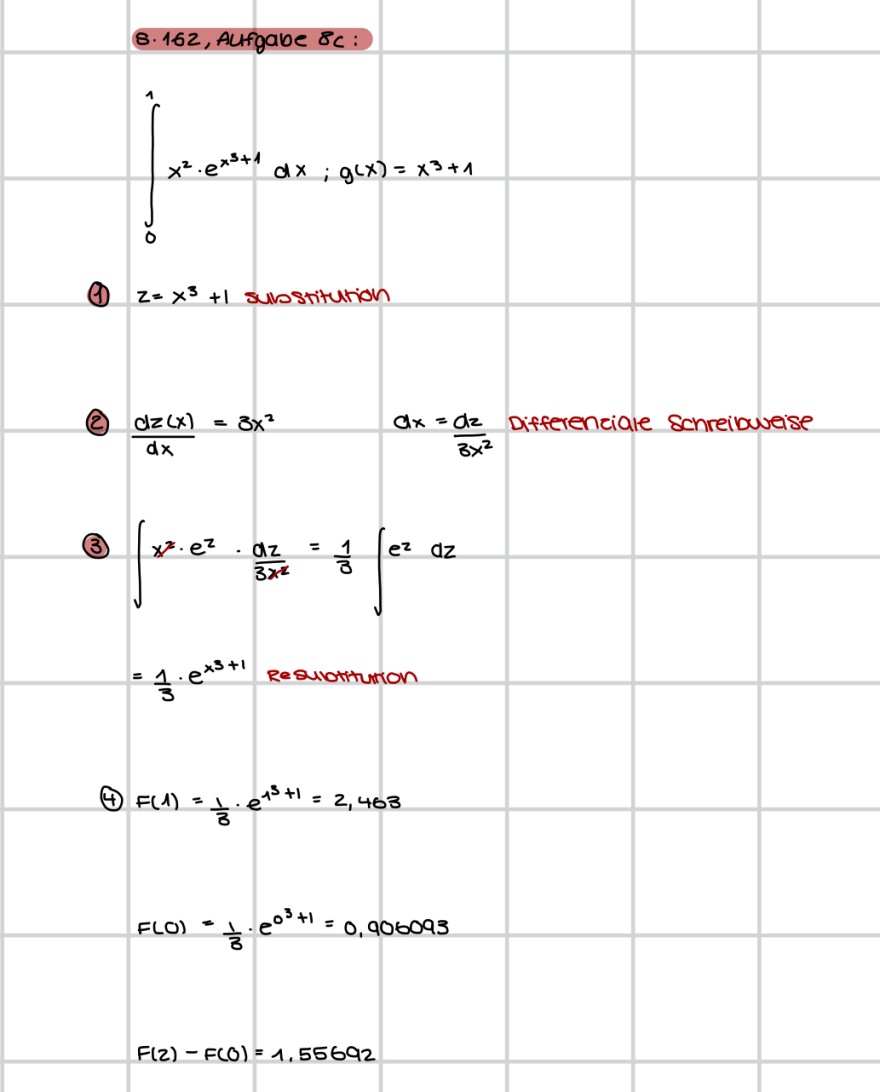 S.162, Aufgabe 8c:
1
∫ x²·e^(x³+1) dx ; g(x) = x³+1
0
① z= x³ +1 Substitution
② dz(x)/dx = 3x² dx = dz/3x² Differenciale Schreibweise
③ ∫ x²·e^z · dz/3x² = 1/3 ∫ e^z dz
= 1/3 · e^(x³+1) Resubtitution
④ F(1) = 1/3 · e^(1³+1) = 2,463
F(0) = 1/3 · e^(0³+1) = 0,906093
F(2) − F(0) = 1,55692